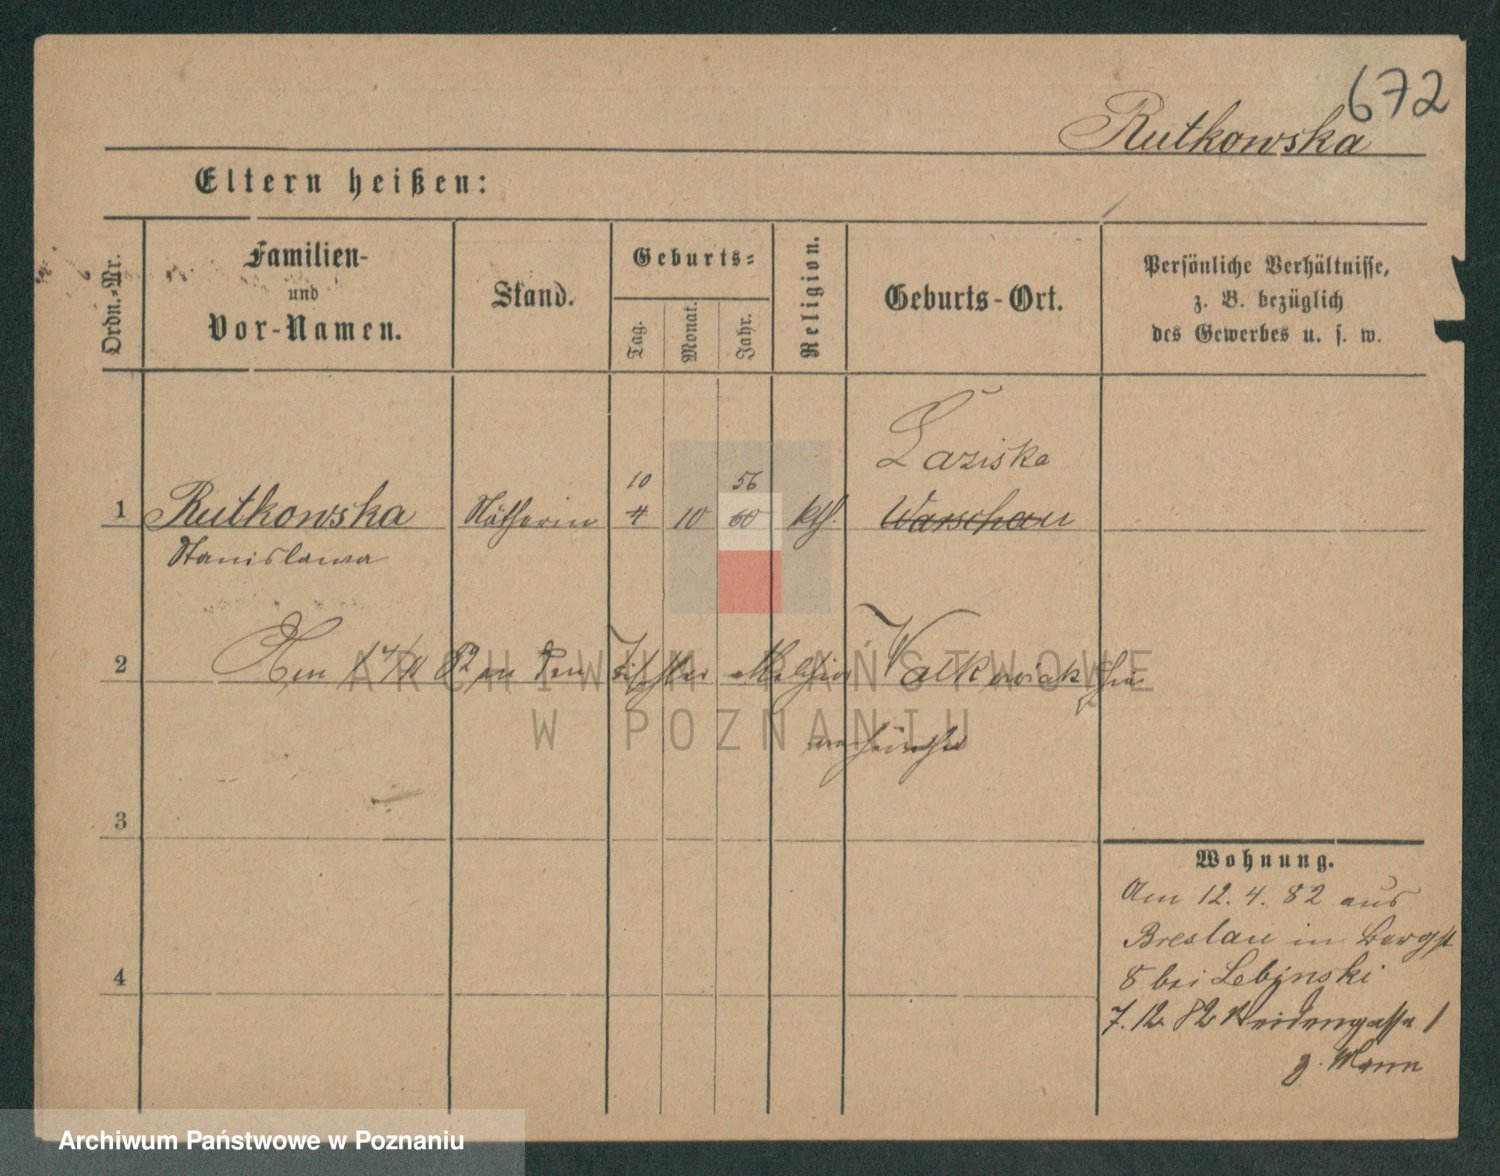 672
Rutkowska
Eltern heißen:
Ordn.-Nr.
Familien-
und
Vor-Namen.
Stand.
Geburts-
Tag.
Monat.
Jahr.
Religion.
Geburts-Ort.
Persönliche Verhältnisse,
z. B. bezüglich
des Gewerbes u. s. w.
10 56 Łaziska
1 Rutkowska Nätherin 4 10 60 kth. Warschau
Stanislawa
2 Am 82 den Tischler Walkowiak
ARCHIWUM PAŃSTWOWE
W POZNANIU
3
Wohnung.
Am 12. 4. 82 aus
Breslau in Bergst
8 bei Lebinski
4
7. 12. 82 Weidengasse 1
z. Mann
Archiwum Państwowe w Poznaniu